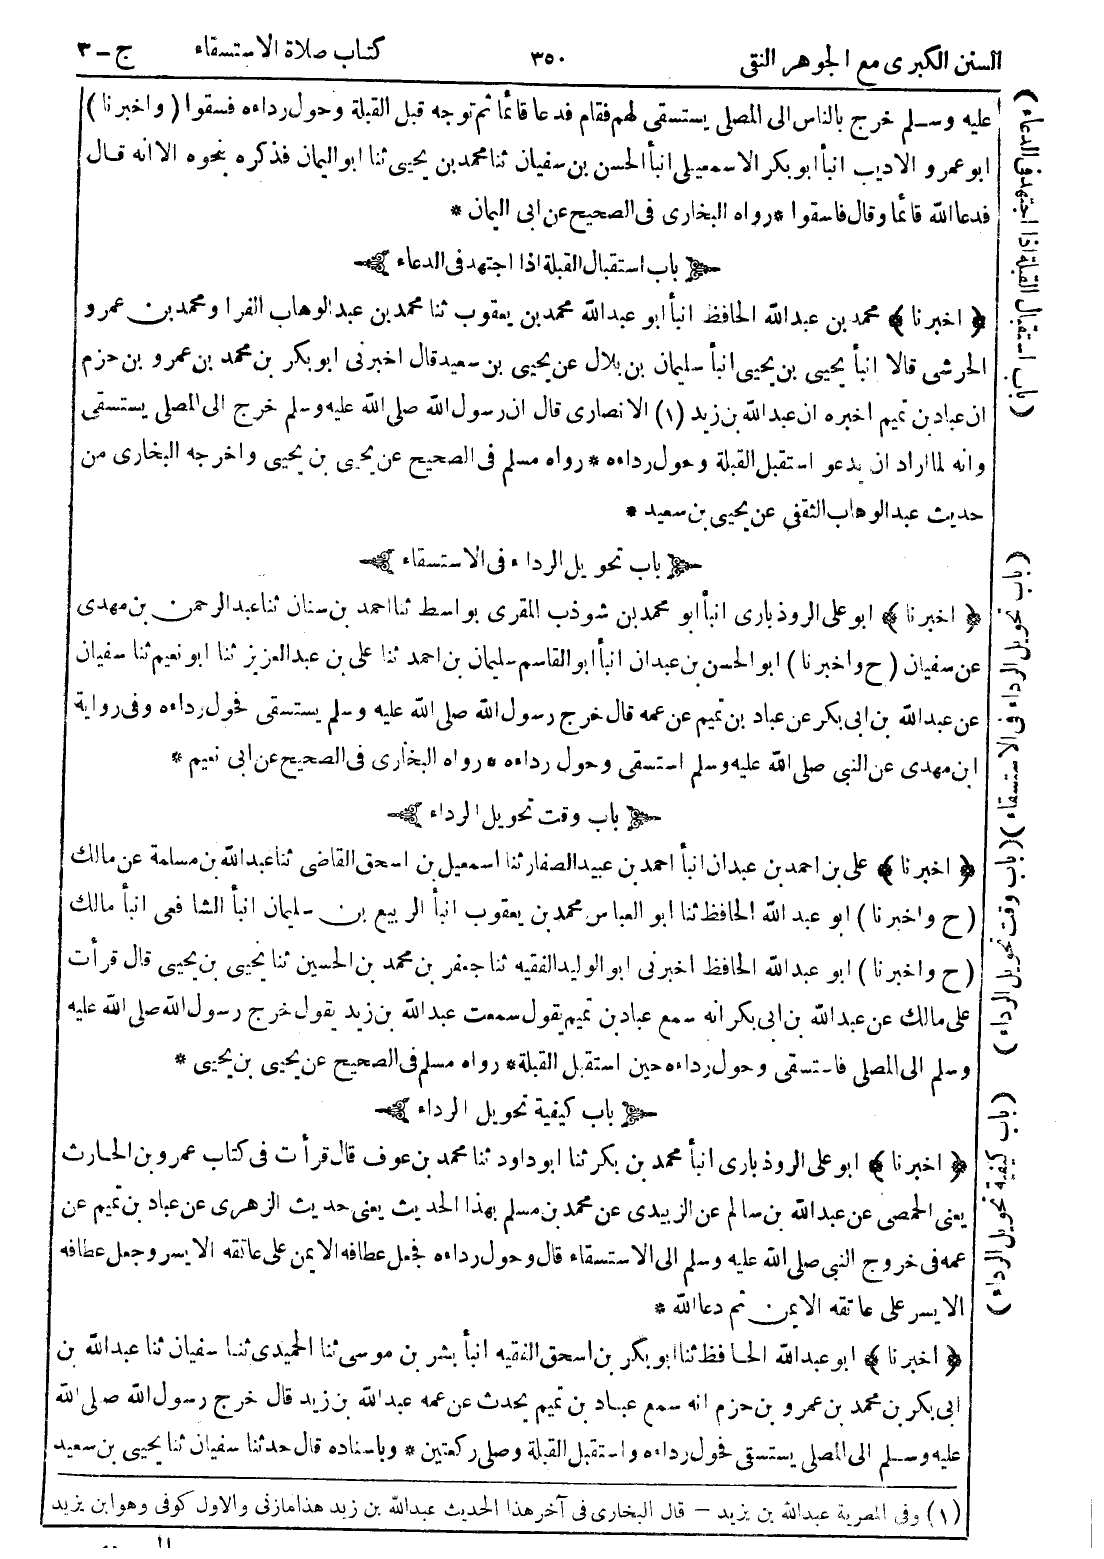 السنن الكبرى مع الجوهر النقى ٣٥٠ كتاب صلاة الاستسقاء ج - ٣
عليه وسلم خرج بالناس الى المصلى يستسقى لهم فقام فدعا قائما ثم توجه قبل القبلة وحول رداءه فسقوا (واخبرنا)
ابو عمرو الاديب انبأ ابو بكر الاسمعيلى انبأ الحسن بن سفيان ثنا محمد بن يحيى ثنا ابو اليمان فذكره بنحوه الا انه قال
فدعا الله قائما وقال فاسقوا * رواه البخارى فى الصحيح عن ابى اليمان *
باب استقبال القبلة اذا اجتهد فى الدعاء
﴿ اخبرنا ﴾ محمد بن عبد الله الحافظ انبأ ابو عبد الله محمد بن يعقوب ثنا محمد بن عبد الوهاب الفرا ومحمد بن عمرو
الحرشى قالا انبأ يحيى بن يحيى انبأ سليمان بن بلال عن يحيى بن سعيد قال اخبرنى ابو بكر بن محمد بن عمرو بن حزم
ان عباد بن تميم اخبره ان عبد الله بن زيد (١) الانصارى قال ان رسول الله صلى الله عليه وسلم خرج الى المصلى يستسقى
وانه لما اراد ان يدعو استقبل القبلة وحول رداءه * رواه مسلم فى الصحيح عن يحيى بن يحيى واخرجه البخارى من
حديث عبد الوهاب الثقفى عن يحيى بن سعيد *
باب تحويل الرداء فى الاستسقاء
﴿ اخبرنا ﴾ ابو على الروذبارى انبأ ابو محمد بن شوذب المقرى بواسط ثنا احمد بن سنان ثنا عبد الرحمن بن مهدى
عن سفيان (ح واخبرنا) ابو الحسن بن عبدان انبأ ابو القاسم سليمان بن احمد ثنا على بن عبد العزيز ثنا ابو نعيم ثنا سفيان
عن عبد الله بن ابى بكر عن عباد بن تميم عن عمه قال خرج رسول الله صلى الله عليه وسلم يستسقى فحول رداءه وفى رواية
ابن مهدى عن النبى صلى الله عليه وسلم استسقى وحول رداءه * رواه البخارى فى الصحيح عن ابى نعيم *
باب وقت تحويل الرداء
﴿ اخبرنا ﴾ على بن احمد بن عبدان انبأ احمد بن عبيد الصفار ثنا اسمعيل بن اسحق القاضى ثنا عبد الله بن مسلمة عن مالك
(ح واخبرنا) ابو عبد الله الحافظ ثنا ابو العباس محمد بن يعقوب انبأ الربيع بن سليمان انبأ الشافعى انبأ مالك
(ح واخبرنا) ابو عبد الله الحافظ اخبرنى ابو الوليد الفقيه ثنا جعفر بن محمد بن الحسين ثنا يحيى بن يحيى قال قرأت
على مالك عن عبد الله بن ابى بكر انه سمع عباد بن تميم يقول سمعت عبد الله بن زيد يقول خرج رسول الله صلى الله عليه
وسلم الى المصلى فاستسقى وحول رداءه حين استقبل القبلة * رواه مسلم فى الصحيح عن يحيى بن يحيى *
باب كيفية تحويل الرداء
﴿ اخبرنا ﴾ ابو على الروذبارى انبأ محمد بن بكر ثنا ابو داود ثنا محمد بن عوف قال قرأت فى كتاب عمرو بن الحارث
يعنى الحمصى عن عبد الله بن سالم عن الزبيدى عن محمد بن مسلم بهذا الحديث يعنى حديث الزهرى عن عباد بن تميم عن
عمه فى خروج النبى صلى الله عليه وسلم الى الاستسقاء قال وحول رداءه فجعل عطافه الايمن على عاتقه الايسر وجعل عطافه
الايسر على عاتقه الايمن ثم دعا الله *
﴿ اخبرنا ﴾ ابو عبد الله الحافظ ثنا ابو بكر بن اسحق الفقيه انبأ بشر بن موسى ثنا الحميدى ثنا سفيان ثنا عبد الله بن
ابى بكر بن محمد بن عمرو بن حزم انه سمع عباد بن تميم يحدث عن عمه عبد الله بن زيد قال خرج رسول الله صلى الله
عليه وسلم الى المصلى يستسقى فحول رداءه واستقبل القبلة وصلى ركعتين * وباسناده قال حدثنا سفيان ثنا يحيى بن سعيد
(١) وفى المصرية عبد الله بن يزيد – قال البخارى فى آخر هذا الحديث عبد الله بن زيد هذا مازنى والاول كوفى وهو ابن يزيد
(باب استقبال القبلة اذا اجتهد فى الدعاء)
(باب تحويل الرداء فى الاستسقاء)
(باب وقت تحويل الرداء)
(باب كيفية تحويل الرداء)